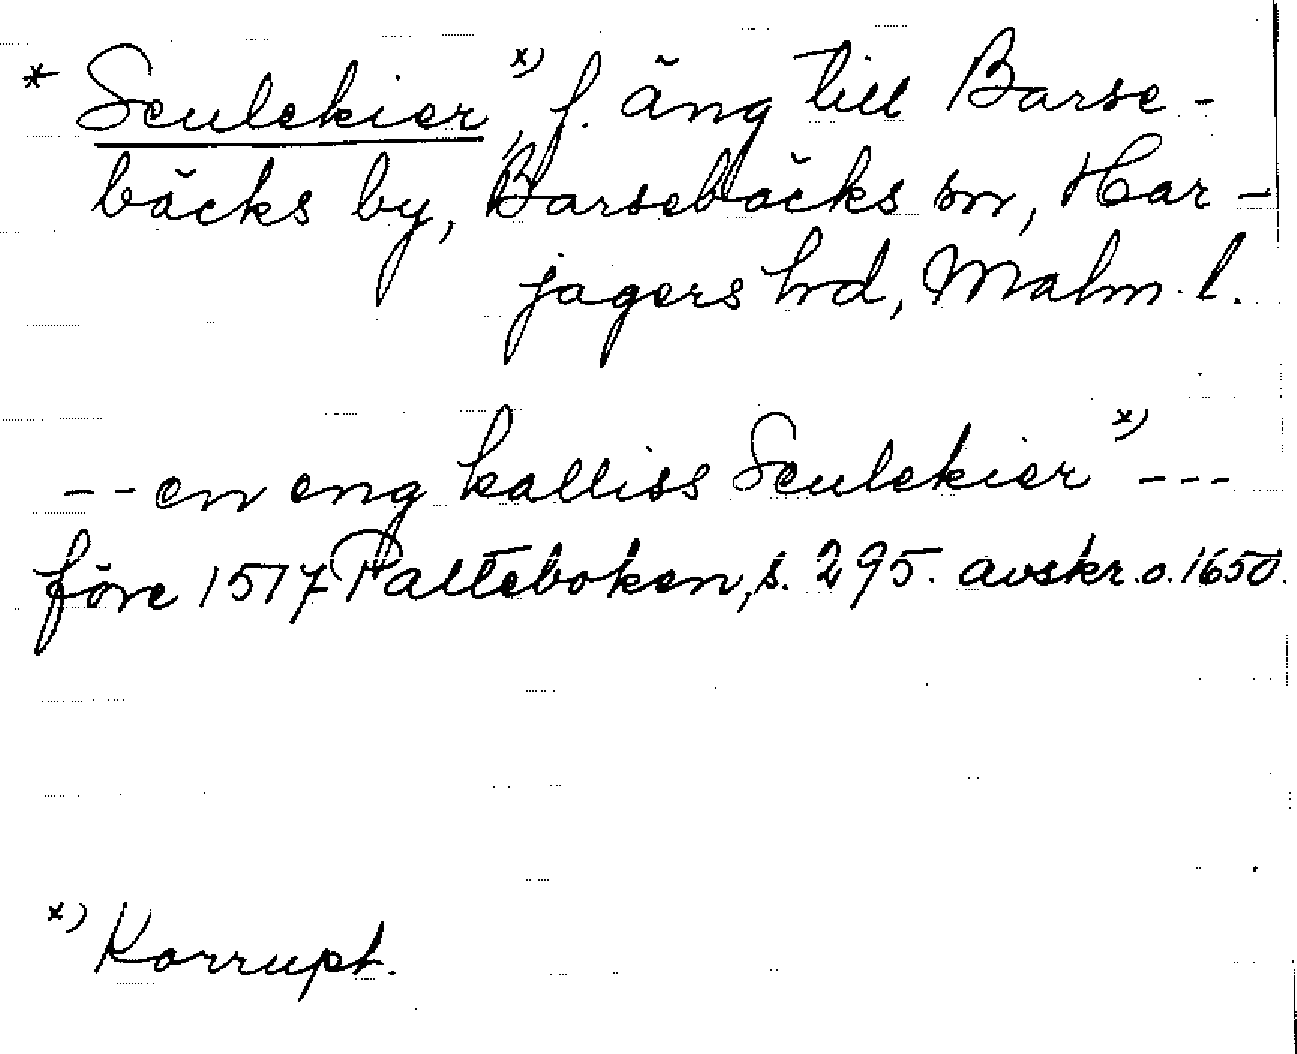 * Seulekier x), f. äng till Barse-
bäcks by, Barsebäcks sn, Har-
jagers hd, Malm. l.
-- en eng kalliss Seulekier x) ---
före 1517 Palteboken, s. 295. avskr. o. 1650.
x) Korrupt.